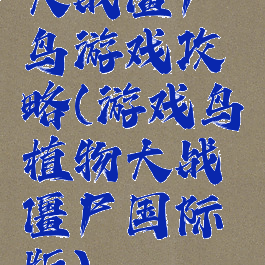 大战僵尸
鸟游戏攻
略(游戏鸟
植物大战
僵尸国际
版)